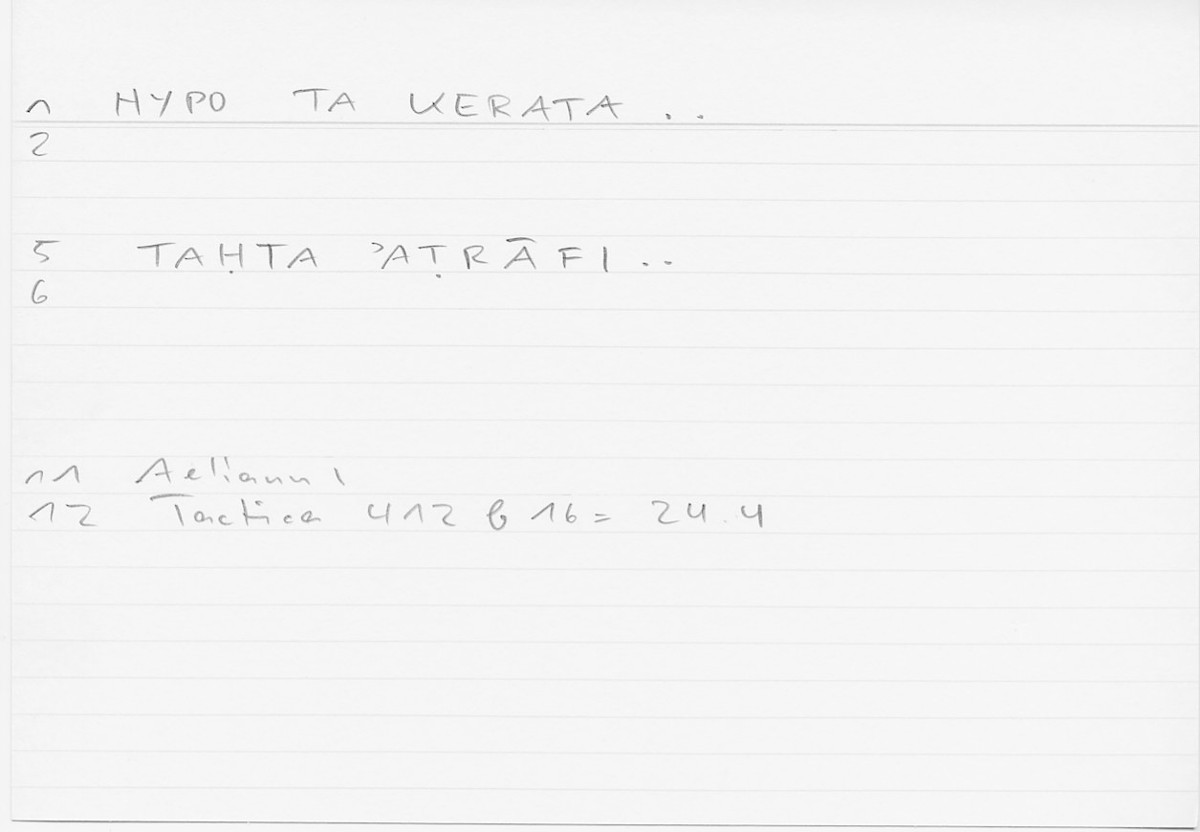 1 HYPO TA KERATA ..
2
5 TAḤTA ʾAṬRĀFI ..
6
11 Aelianus
12 Tactica 412 b 16 = 24.4